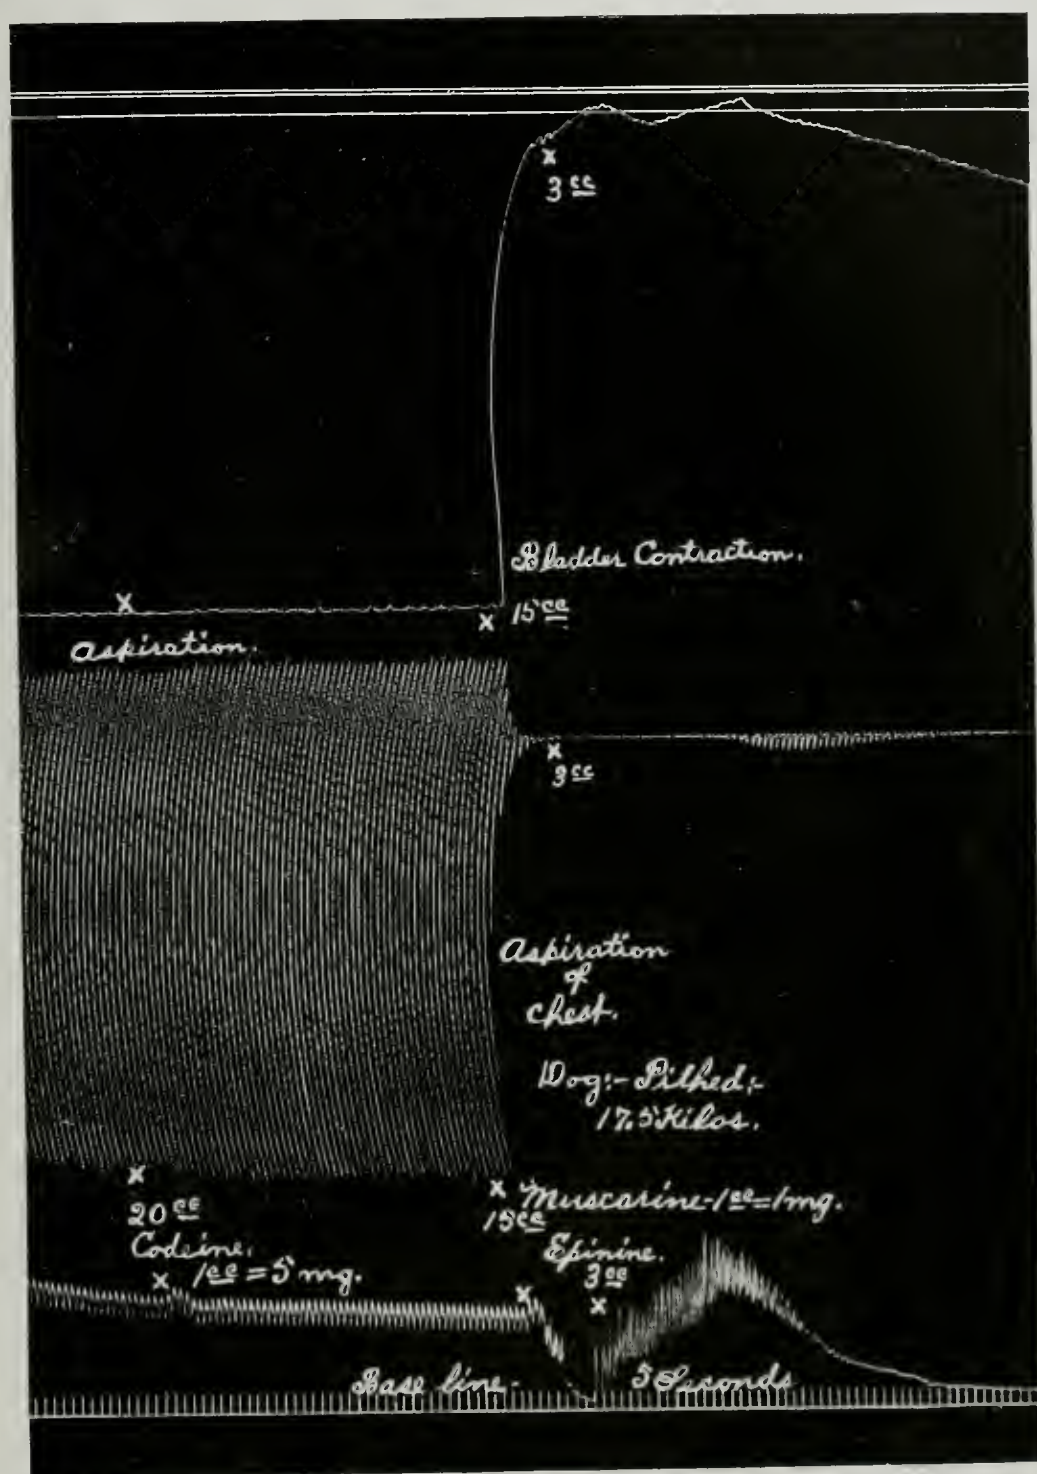 x
3 cc
Bladder Contraction.
x
x 15 cc
Aspiration.
x
3 cc
Aspiration
of
Chest.
Dog:- Pithed:-
17.5 Kilos.
x
20 cc
Codeine.
x 1 cc = 5 mg.
x Muscarine-1 cc=1 mg.
15 cc
Epinine.
3 cc
x x
Base line- 5 Seconds